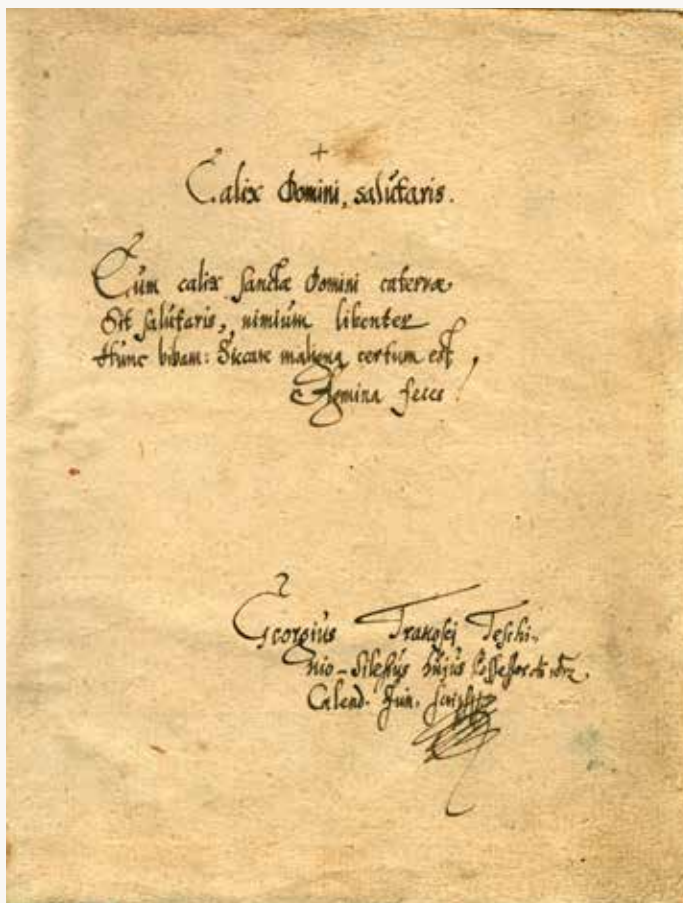 +
Calix Domini, salutaris.
Cum calix sanctæ Domini catervæ
Sit salutaris, nimium libenter
Hunc bibam: Siccare maligna certum est
Agmina feces!
Georgius Tranosci Teschi-
nio-Silesius hujus Possessor
Calend. Jun. scripsit